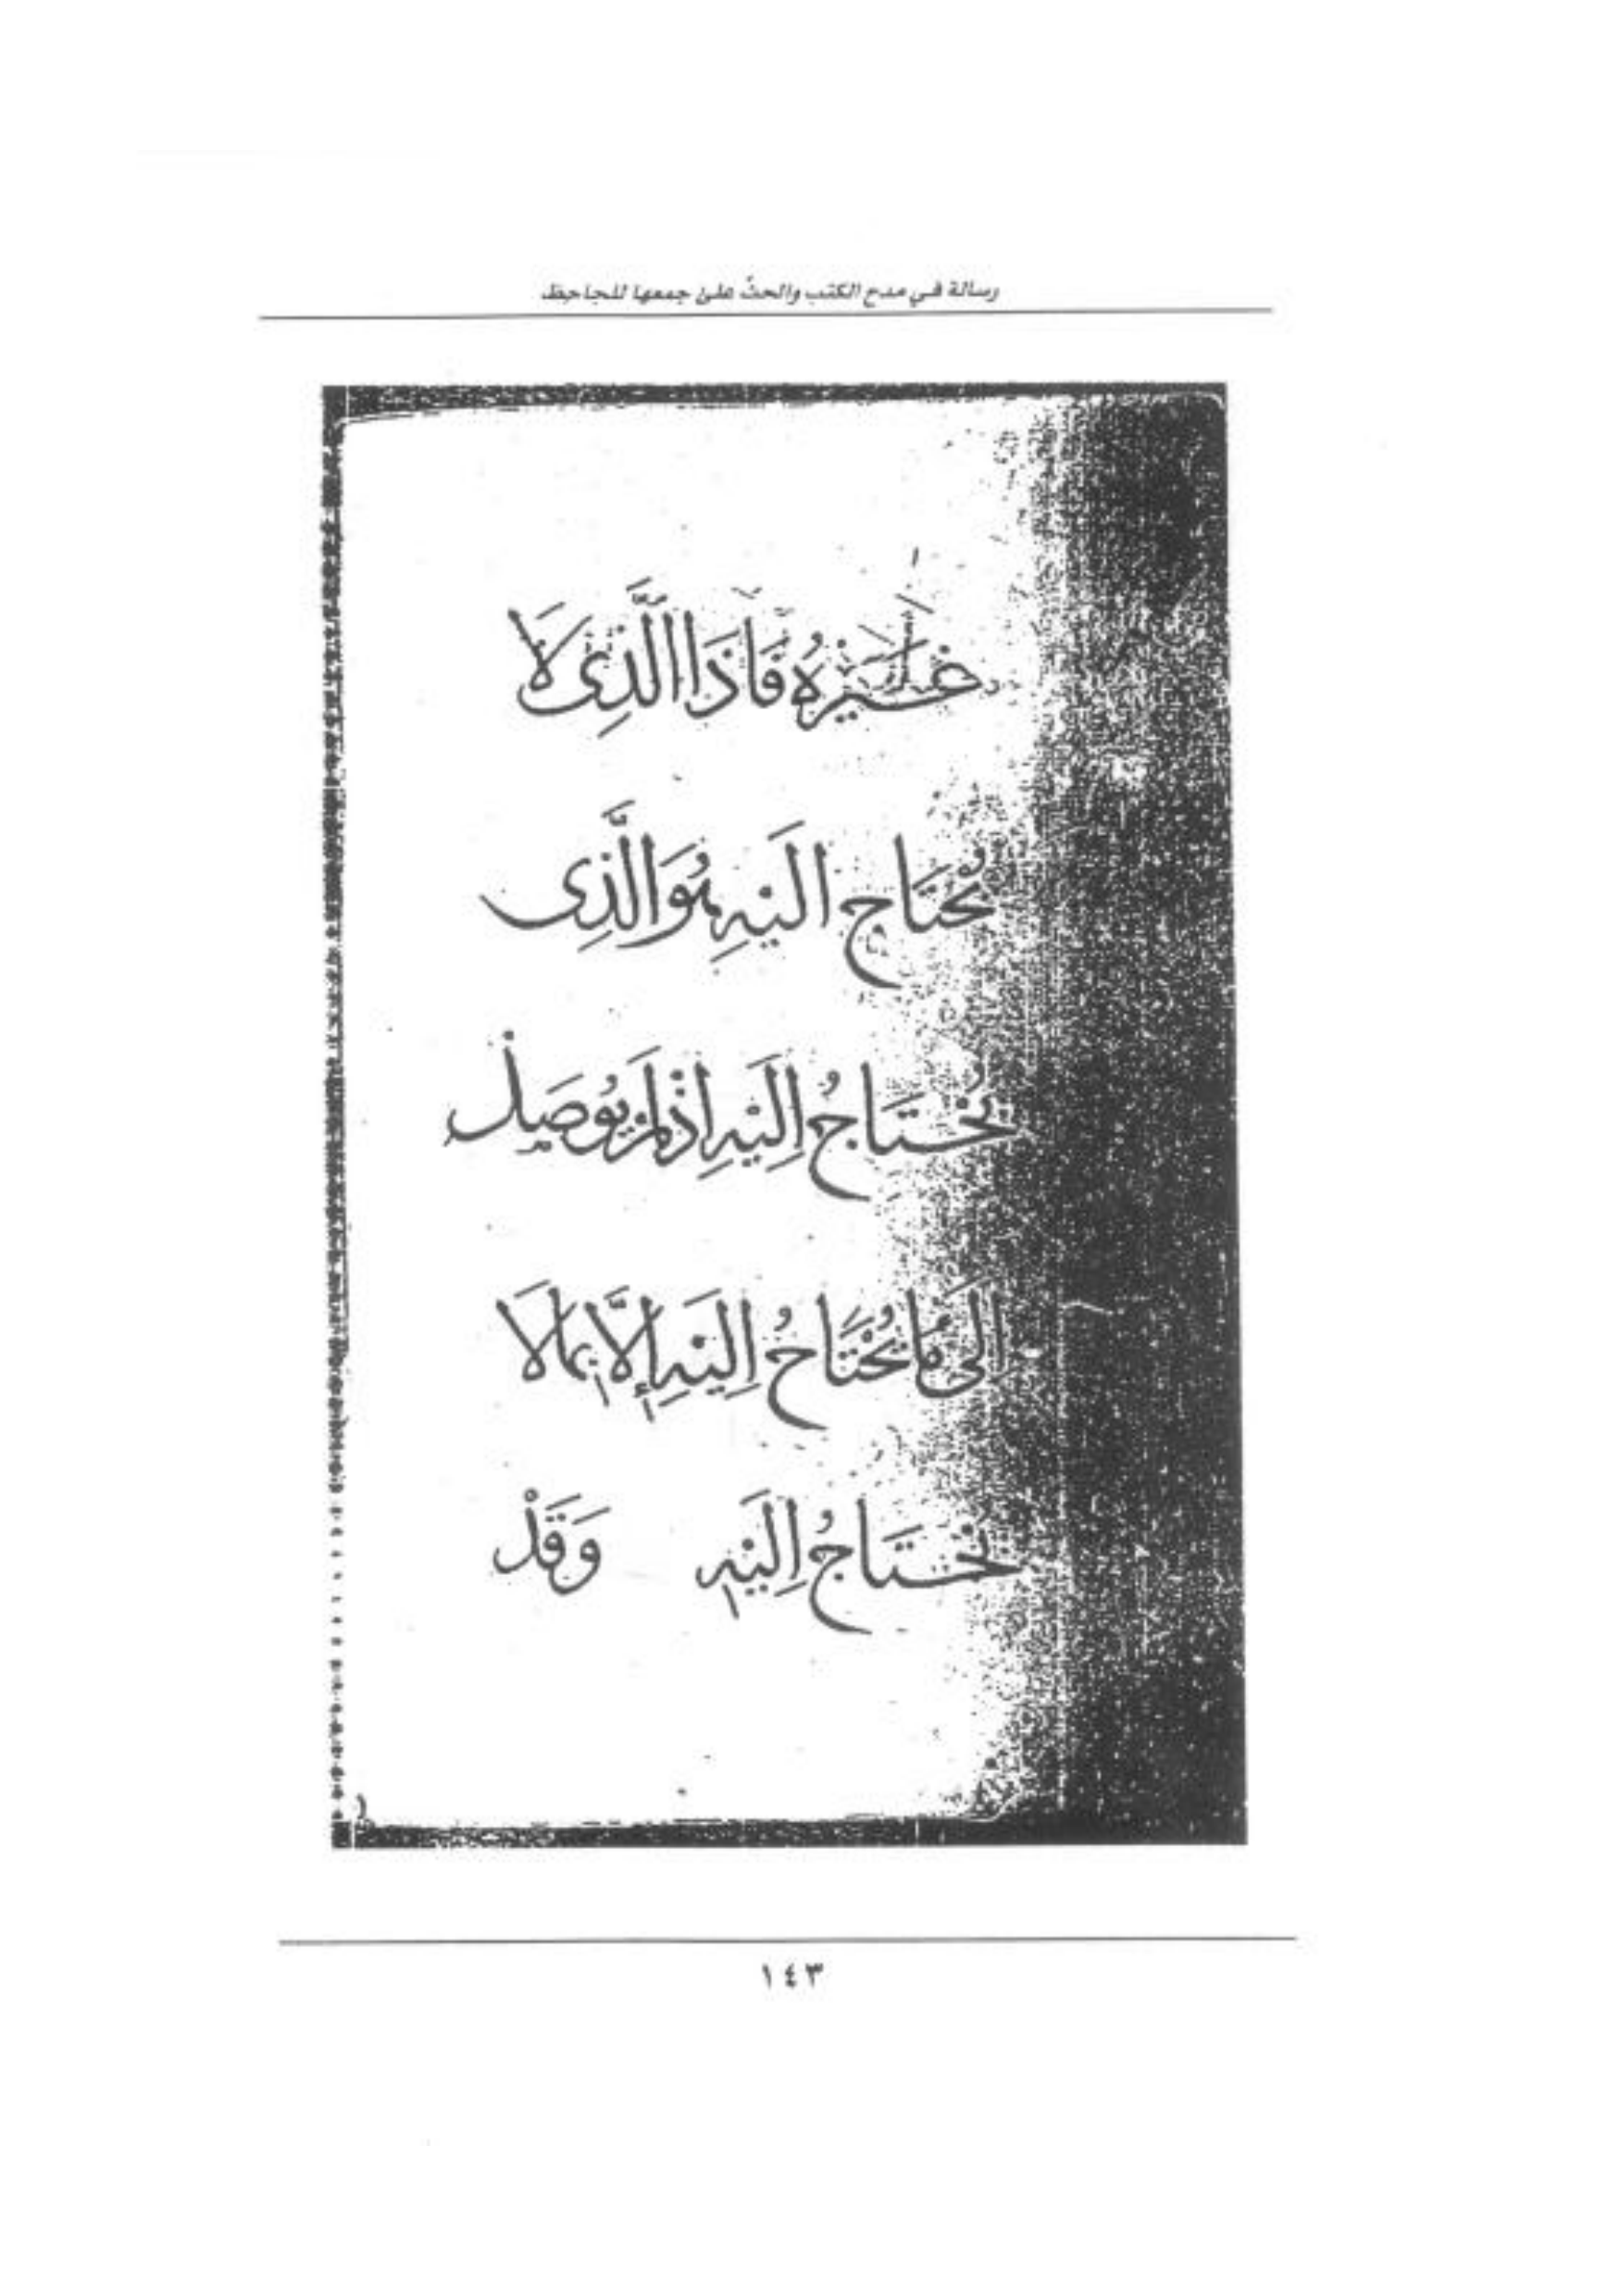 رسالة في مدح الكتب والحثّ على جمعها للجاحظ
غَيْرُهُ فَاذَا الَّذِى لَا
يُحْتَاج الَيْهِ هُوَ الَّذِى
يُحْتَاجُ اِلَيْهِ اِذْ لَمْ يُوصَلْ
الَى مَا يُحْتَاجُ اِلَيْهِ إِلَّا بِمَا لَا
يُحْتَاجُ اِلَيْهِ وَقَدْ
١٤٣